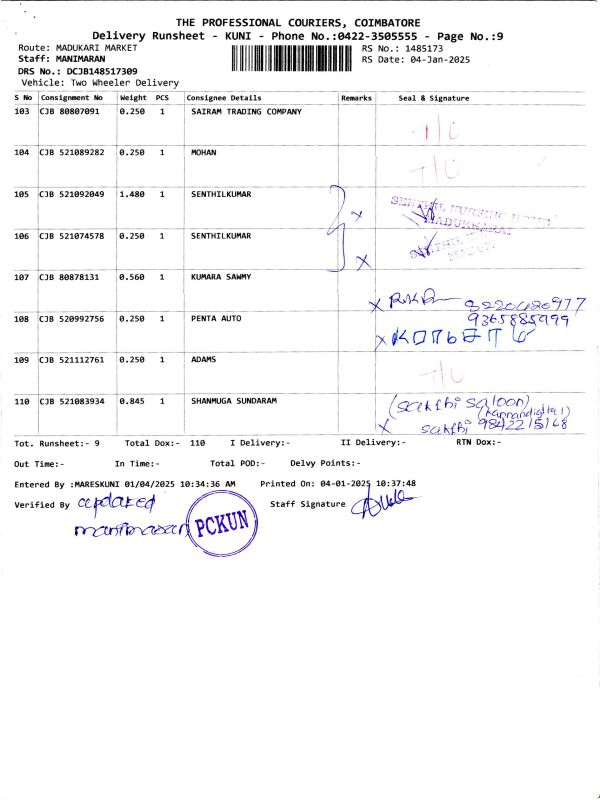 THE PROFESSIONAL COURIERS, COIMBATORE
Delivery Runsheet - KUNI - Phone No.:0422-3505555 - Page No.:9
Route: MADUKARI MARKET RS No.: 1485173
Staff: MANIMARAN RS Date: 04-Jan-2025
DRS No.: DCJB148517309
Vehicle: Two Wheeler Delivery
S No Consignment No Weight PCS Consignee Details Remarks Seal & Signature
103 CJB 80807091 0.250 1 SAIRAM TRADING COMPANY T/C
104 CJB 521089282 0.250 1 MOHAN T/C
105 CJB 521092049 1.480 1 SENTHILKUMAR x SENTHIL NURSING HOME
MADUKKARAI
106 CJB 521074578 0.250 1 SENTHILKUMAR x
107 CJB 80878131 0.560 1 KUMARA SAWMY
x 8220420977
108 CJB 520992756 0.250 1 PENTA AUTO 9365885999
x
109 CJB 521112761 0.250 1 ADAMS T/C
110 CJB 521083934 0.845 1 SHANMUGA SUNDARAM (sakthi saloon)
x sakthi
Tot. Runsheet:- 9 Total Dox:- 110 I Delivery:- II Delivery:- RTN Dox:-
Out Time:- In Time:- Total POD:- Delvy Points:-
Entered By :MARESKUNI 01/04/2025 10:34:36 AM Printed On: 04-01-2025 10:37:48
Verified By updated Staff Signature
manimaran PCKUN